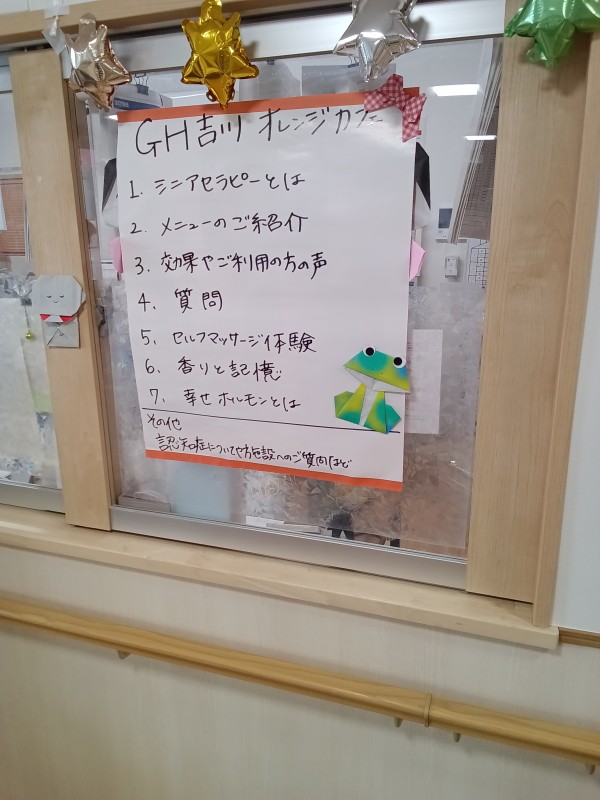 GH吉川 オレンジカフェ
1. シニアセラピーとは
2. メニューのご紹介
3. 効果やご利用の方の声
4. 質問
5. セルフマッサージ体験
6. 香りと記憶
7. 幸せホルモンとは
その他
認知症についてや施設へのご質問など